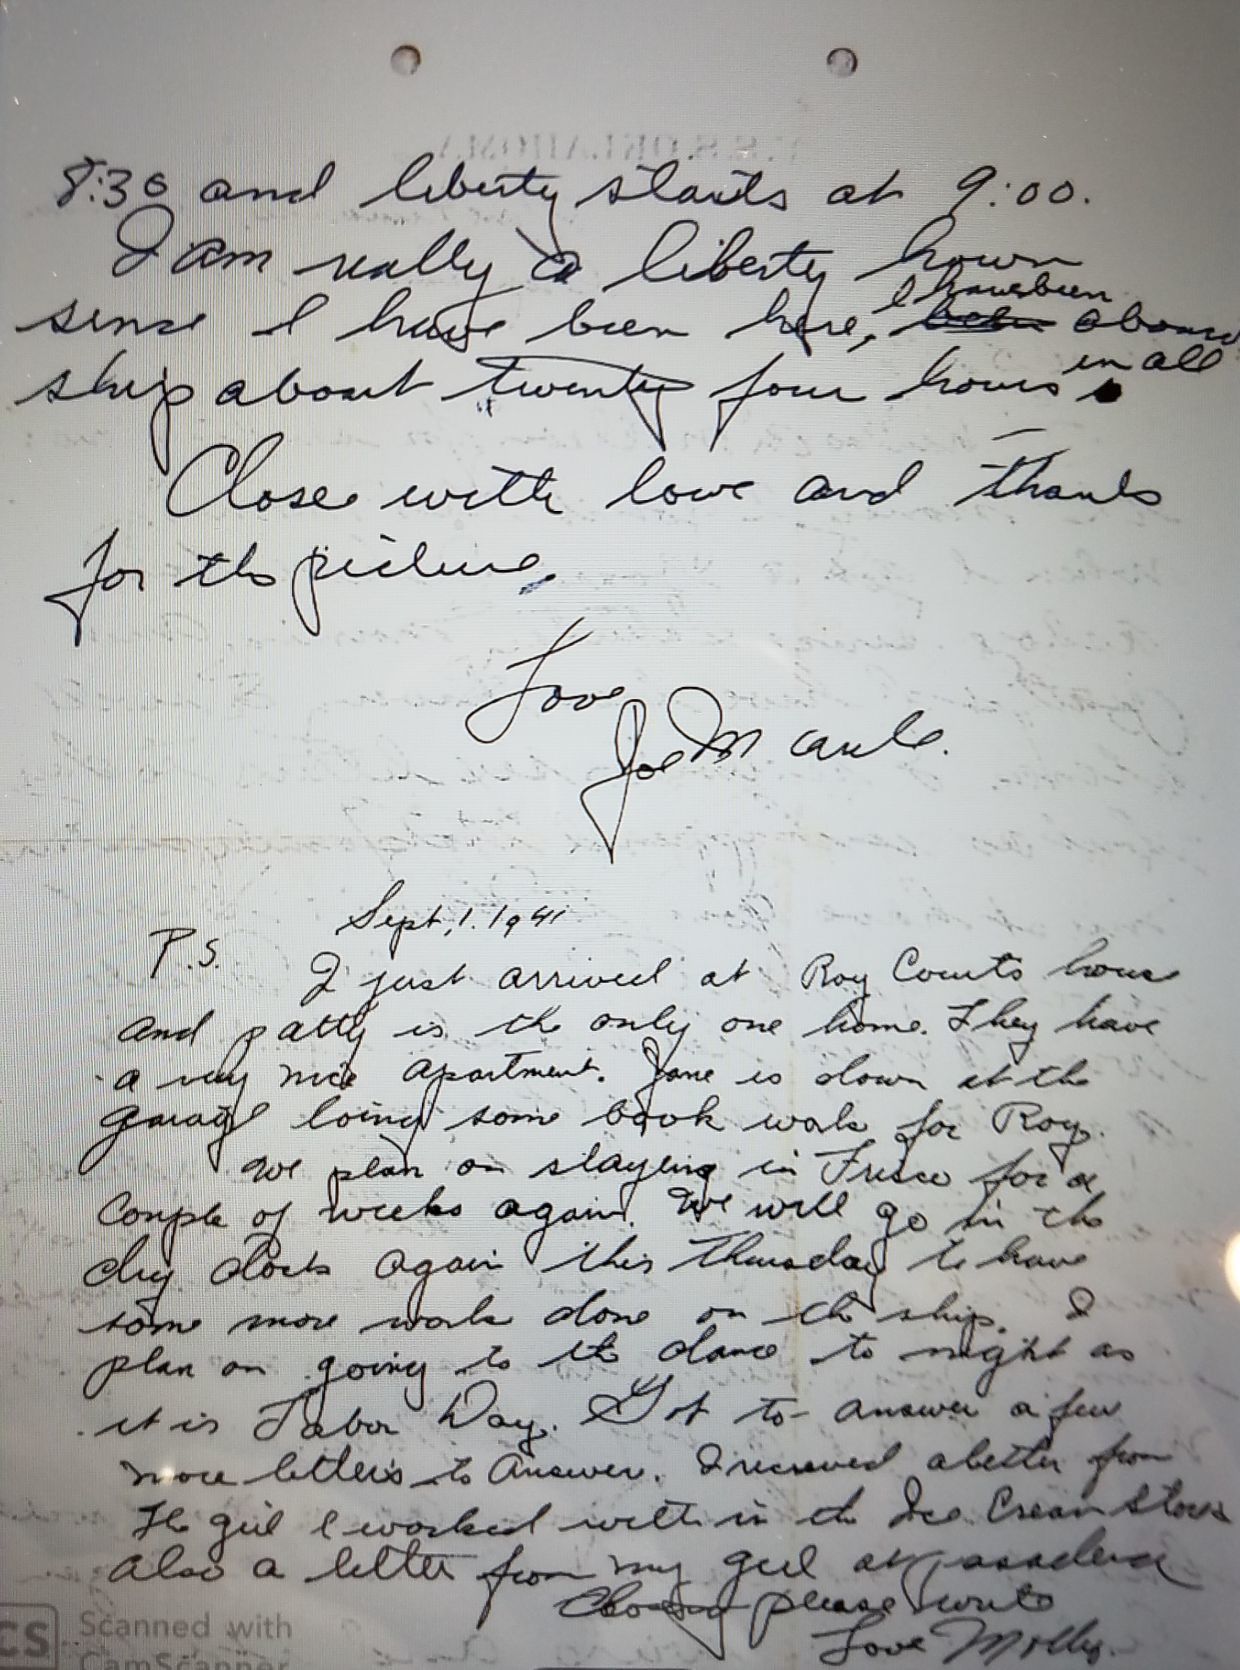 8:30 and liberty starts at 9:00.
I am really a liberty hown
since I have been here, I have been aboard
ship about twenty four hours in all.
Close with love and thanks
for the picture,
Love
Joe M
Sept, 1. 1941
P.S. I just arrived at Roy Couts house
and patty is the only one home. They have
a very nice apartment. Jane is down at the
garage loing some book work for Roy.
We plan on staying in Frisco for a
couple of weeks again. We will go in the
dry dock again this thursday to have
some more work done on the ship. I
plan on going to the dance to night as
it is Labor Day. Got to answer a few
more letters to answer. I received a letter from
the girl I worked with in the Ice Cream Store
also a letter from my girl at pasadena
please write
Love Molly.
Scanned with
CamScanner
CS